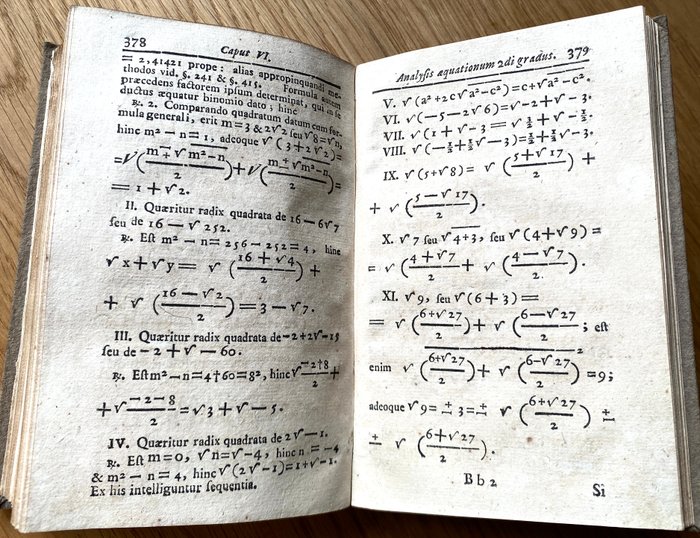 378
Caput VI.
= 2,41421 prope: alias appropinquandi me-
thodos vid. §. 241 & §. 415. Formula autem
præcedens factorem ipsum determipat, qui in se
ductus æquatur binomio dato; hinc
℞. 2. Comparando quadratum datum cum for-
mula generali, erit m = 3 & 2√2 seu √8 = √n,
hinc m² − n = 1, adeoque √(3 + 2√2) =
= √(m + √m² − n / 2) + √(m − √m² − n / 2) =
= 1 + √2.
II. Quæritur radix quadrata de 16 − 6√7
seu de 16 − √252.
℞. Est m² − n = 256 − 252 = 4, hinc
√x + √y = √(16 + √4 / 2) +
+ √(16 − √2 / 2) = 3 − √7.
III. Quæritur radix quadrata de −2 + 2√−15
seu de −2 + √−60.
℞. Est m² − n = 4 + 60 = 8², hinc √−2 + 8 / 2 +
+ √−2 − 8 / 2 = √3 + √−5.
IV. Quæritur radix quadrata de 2√−1.
℞. Est m = 0, √n = √−4, hinc n = −4
& m² − n = 4, hinc √(2√−1) = 1 + √−1.
Ex his intelliguntur sequentia.
Analysis æquationum 2di gradus. 379
V. √(a² + 2c√a² − c²) = c + √a² − c².
VI. √(−5 − 2√6) = √−2 + √−3.
VII. √(1 + √−3 = √3/2 + √−1/2.
VIII. √(−1/2 + 1/2√−3) = 1/2 + 1/2√−3.
IX. √(5 + √8) = √(5 + √17 / 2) +
+ √(5 − √17 / 2).
X. √7 seu √4 + 3, seu √(4 + √9) =
= √(4 + √7 / 2) + √(4 − √7 / 2).
XI. √9, seu √(6 + 3) =
= √(6 + √27 / 2) + √(6 − √27 / 2; est
enim √(6 + √27 / 2) + √(6 − √27 / 2)² = 9;
adeoque √9 = ± 3 = ± √(6 + √27 / 2) ±
± √(6 + √27 / 2).
Bb 2
Si